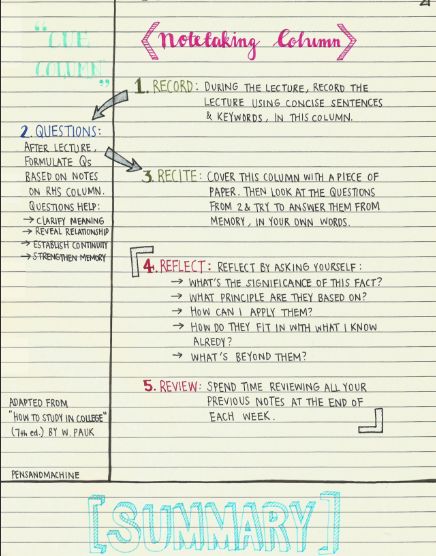 "CUE
COLUMN"
Notetaking Column
1. RECORD: DURING THE LECTURE, RECORD THE
LECTURE USING CONCISE SENTENCES
& KEYWORDS, IN THIS COLUMN.
2. QUESTIONS:
AFTER LECTURE,
FORMULATE Qs
BASED ON NOTES
ON RHS COLUMN.
QUESTIONS HELP:
→ CLARIFY MEANING
→ REVEAL RELATIONSHIP
→ ESTABLISH CONTINUITY
→ STRENGTHEN MEMORY
3. RECITE: COVER THIS COLUMN WITH A PIECE OF
PAPER. THEN LOOK AT THE QUESTIONS
FROM 2 & TRY TO ANSWER THEM FROM
MEMORY, IN YOUR OWN WORDS.
4. REFLECT: REFLECT BY ASKING YOURSELF:
→ WHAT'S THE SIGNIFICANCE OF THIS FACT?
→ WHAT PRINCIPLE ARE THEY BASED ON?
→ HOW CAN I APPLY THEM?
→ HOW DO THEY FIT IN WITH WHAT I KNOW
ALREDY?
→ WHAT'S BEYOND THEM?
5. REVIEW: SPEND TIME REVIEWING ALL YOUR
PREVIOUS NOTES AT THE END OF
EACH WEEK.
ADAPTED FROM
"HOW TO STUDY IN COLLEGE"
(7th ed.) BY W. PAUK
PENSANDMACHINE
[SUMMARY]